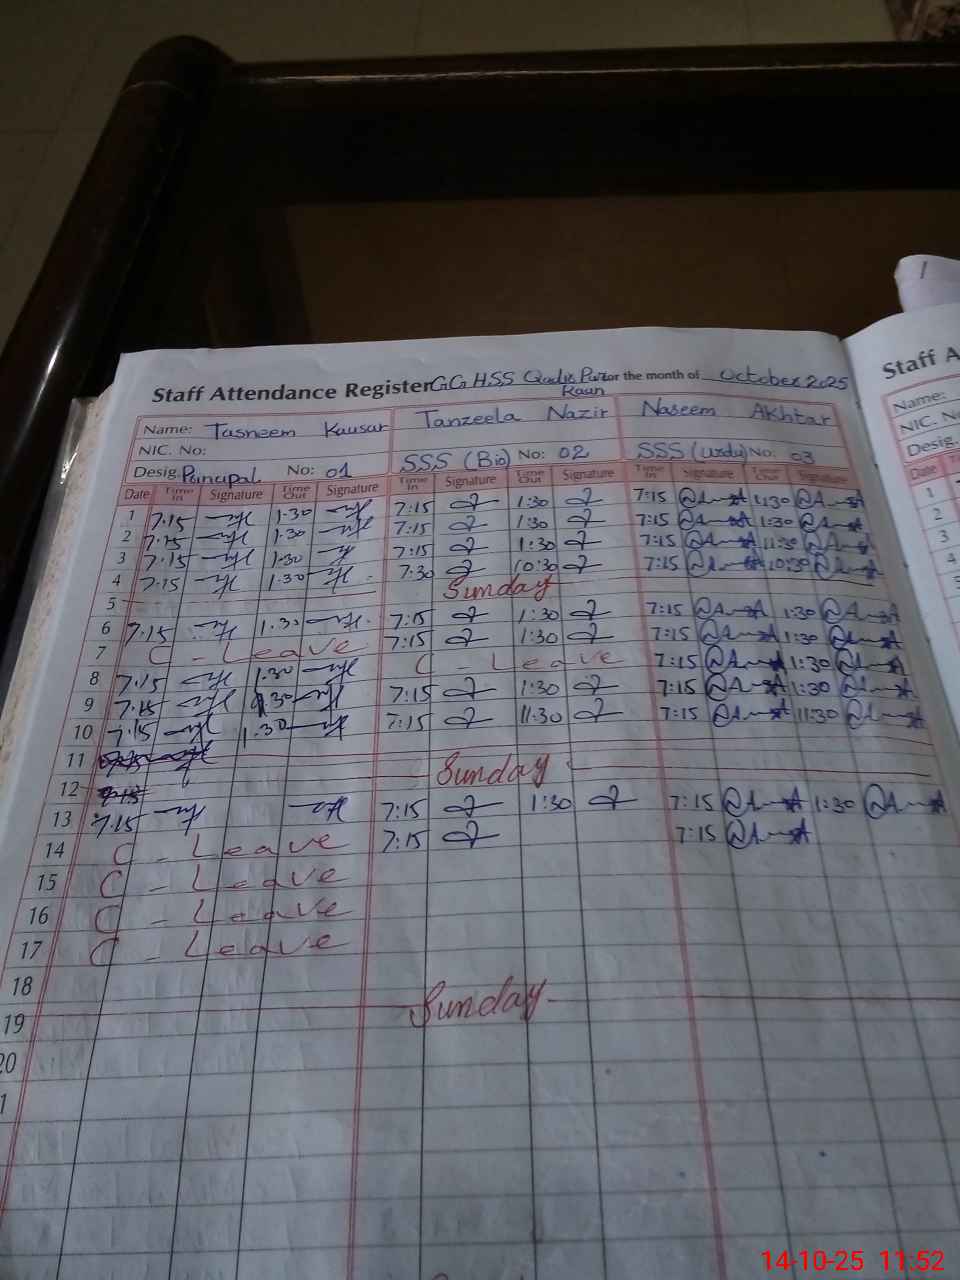 Staff Attendance Register GGHSS Qadir Pur for the month of October 2025
Raun
Staff A
Name: Tasneem Kausar Tanzeela Nazir Naseem Akhtar
Name:
NIC. No:
NIC. No
Desig. Principal No: 01 SSS (Bio) No: 02 SSS (urdu) No: 03
Desig.
Date Time In Signature Time Out Signature Time In Signature Time Out Signature Time In Signature Time Out Signature
Date Time In
1 7:15 1:30 7:15 1:30 7:15 1:30
2 7:15 1:30 7:15 1:30 7:15 1:30
3 7:15 1:30 7:15 1:30 7:15 11:30
4 7:15 1:30 7:30 10:30 7:15 10:30
5 Sunday
6 7:15 1:30 7:15 1:30 7:15 1:30
7 C - Leave 7:15 1:30 7:15 1:30
8 7:15 1:30 C - Leave 7:15 1:30
9 7:15 1:30 7:15 1:30 7:15 1:30
10 7:15 1:30 7:15 11:30 7:15 11:30
11
12 Sunday
13 7:15 7:15 1:30 7:15 1:30
14 C - Leave 7:15 7:15
15 C - Leave
16 C - Leave
17 C - Leave
18
19 Sunday
20
1
1
2
3
4
5
14-10-25 11:52